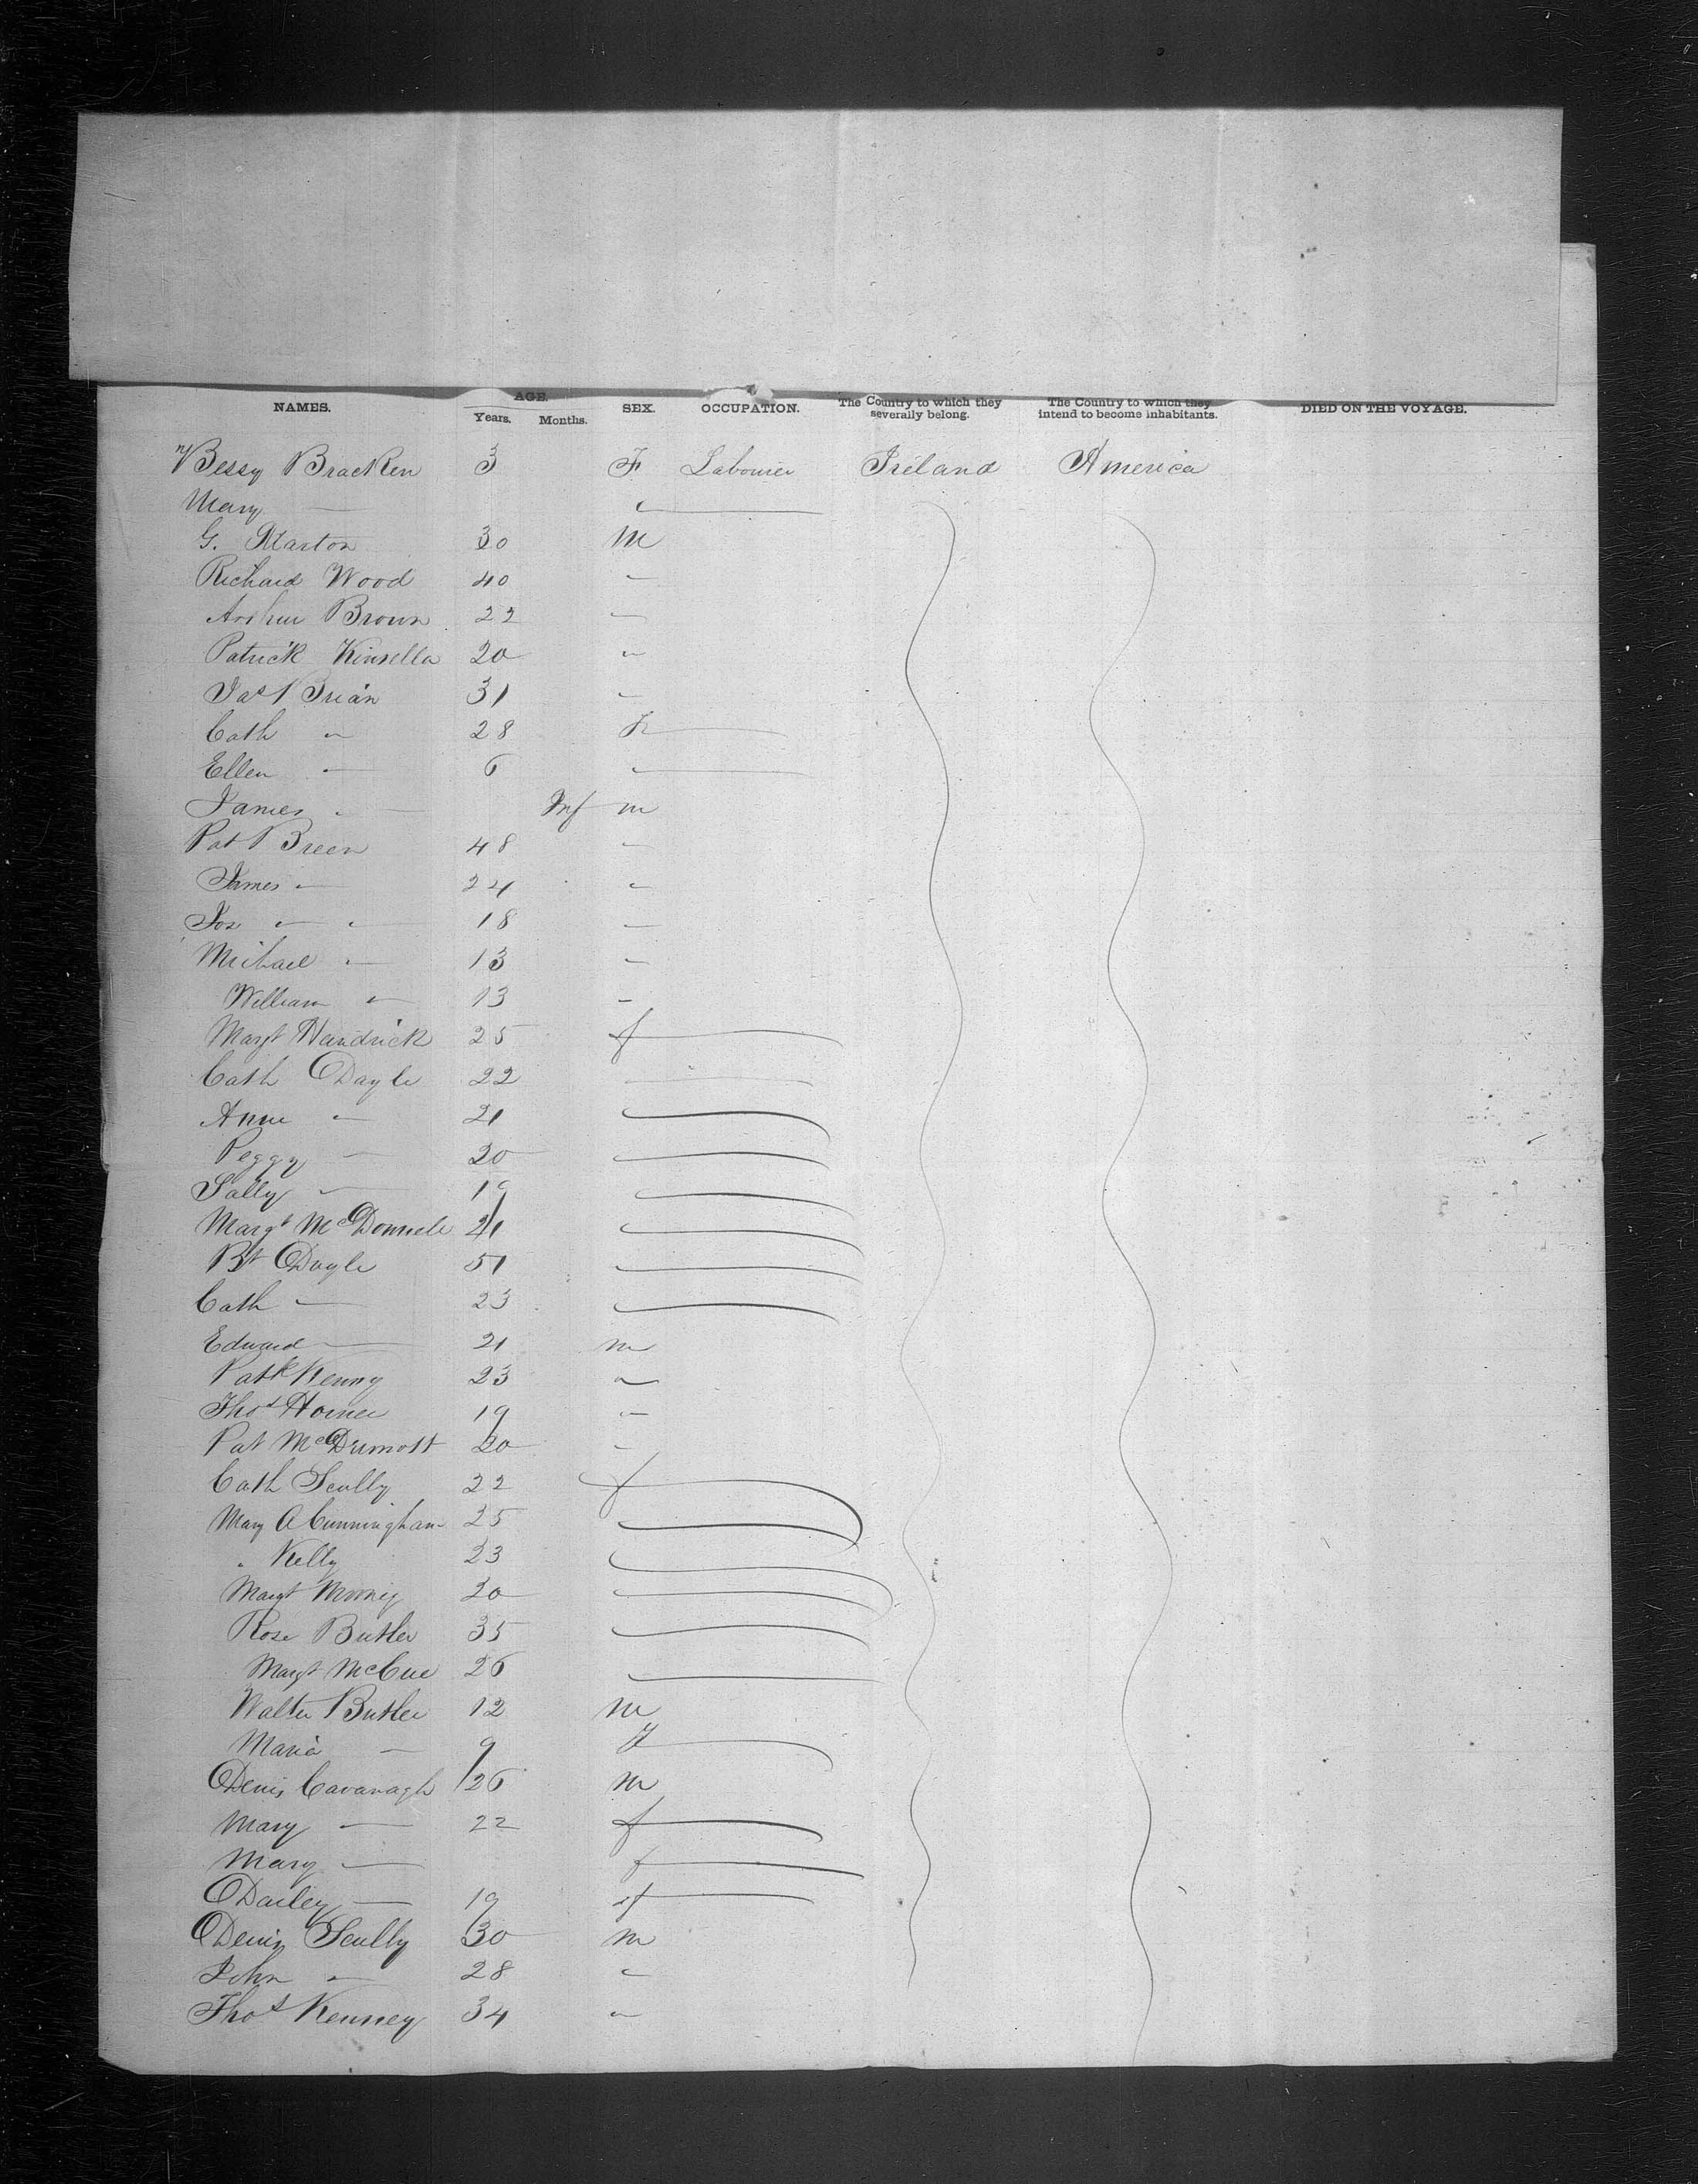 NAMES. AGE. Years. Months. SEX. OCCUPATION. The Country to which they severally belong. The Country to which they intend to become inhabitants. DIED ON THE VOYAGE.
Bessy Bracken 3 F Labourer Ireland America
Mary —
G. Marton 30 M
Richard Wood 40 "
Arthur Brown 22 "
Patrick Kinsella 20 "
Jas Brian 31 "
Cath " 28 F
Ellen " 6 "
James " Inf m
Pat Breen 48 "
James " 24 "
Jos " " 18 "
Michael " 13 "
William " 13 "
Margt Handrick 25 f
Cath Doyle 22
Anne " 21 "
Peggy — 20 "
Sally " 19 "
Margt McDonnele 21 "
Bt Doyle 51 "
Cath " 23 "
Edward — 21 m
Patk Kenny 23 "
Thos Horner 19 "
Pat McDermott 20 "
Cath Scully 22 f
Mary A Cunningham 25 "
" Kelly 23 "
Margt 20 "
Rose Butler 35 "
Margt McCue 26 "
Walter Butler 12 m
Maria — 9 f
Denis Cavanagh 26 m
Mary — 22 f
Mary — f
Dailey — 19 f
Denis Scully 30 m
John " 28 "
Thos Kenney 34 "